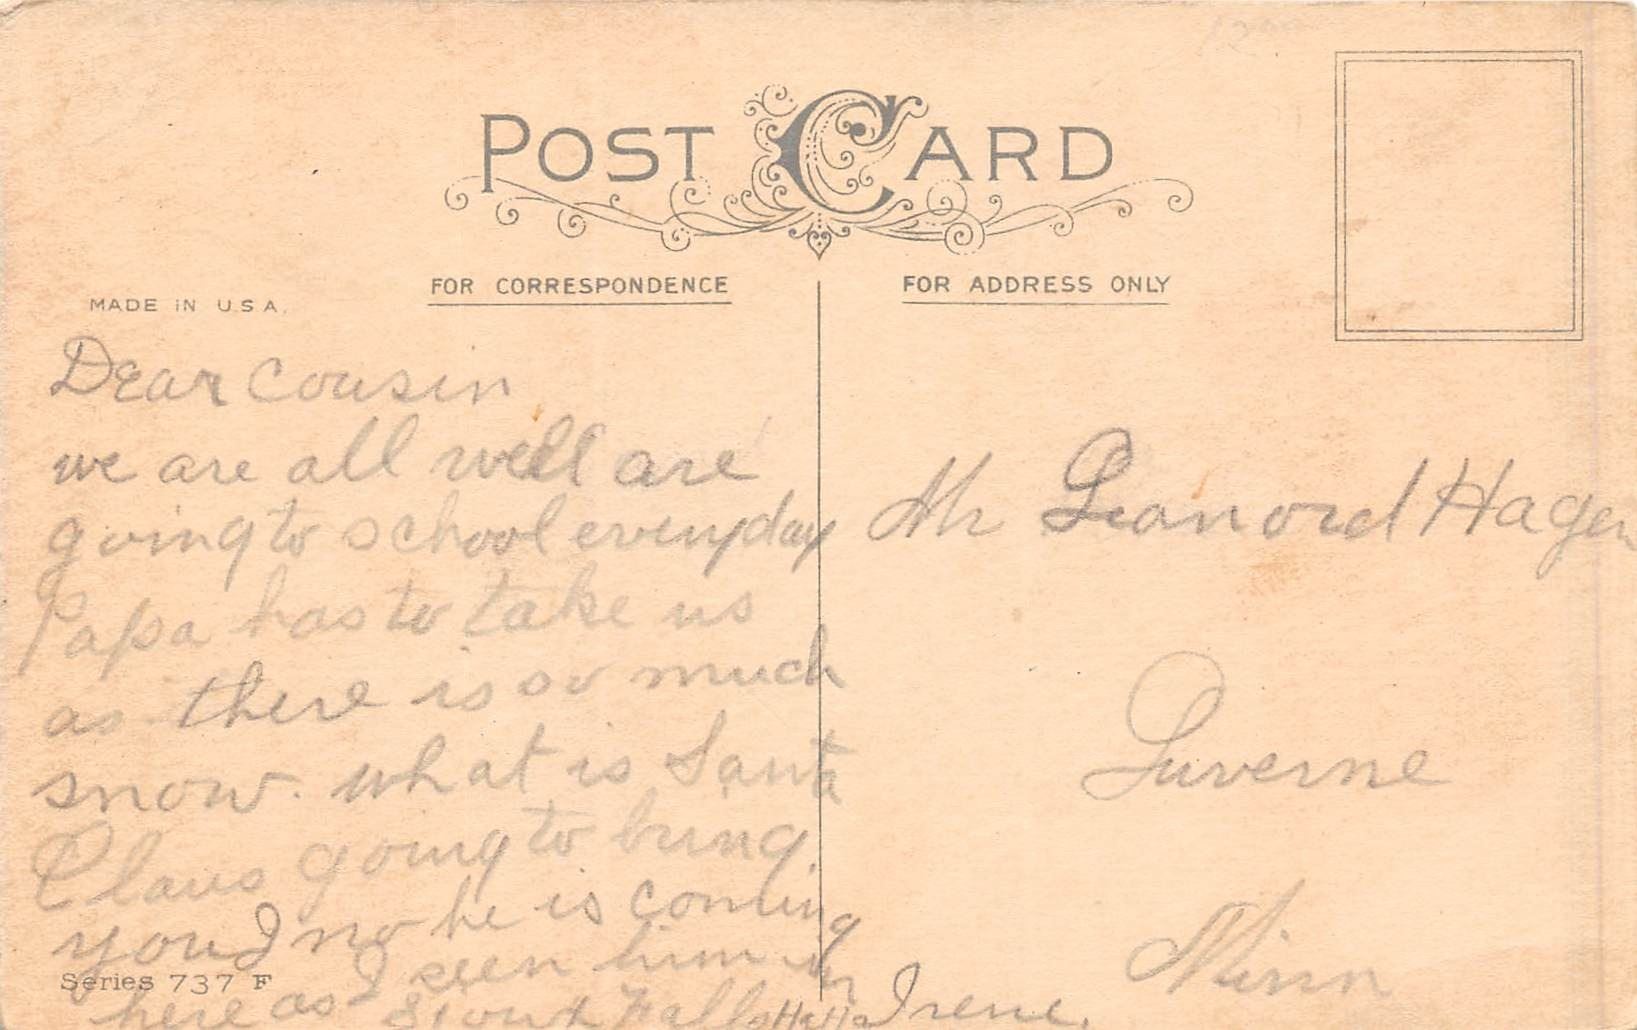 POST CARD
FOR CORRESPONDENCE
FOR ADDRESS ONLY
MADE IN U.S.A.
Dear Cousin
we are all well are
going to school everyday
Papa has to take us
as there is so much
snow. what is Santa
Claus going to bring
you I no he is coming
here as I seen him in
Sioux Falls Ha Ha Irene.
Series 737 F
Mr Leonord Hagen
Luverne
Minn